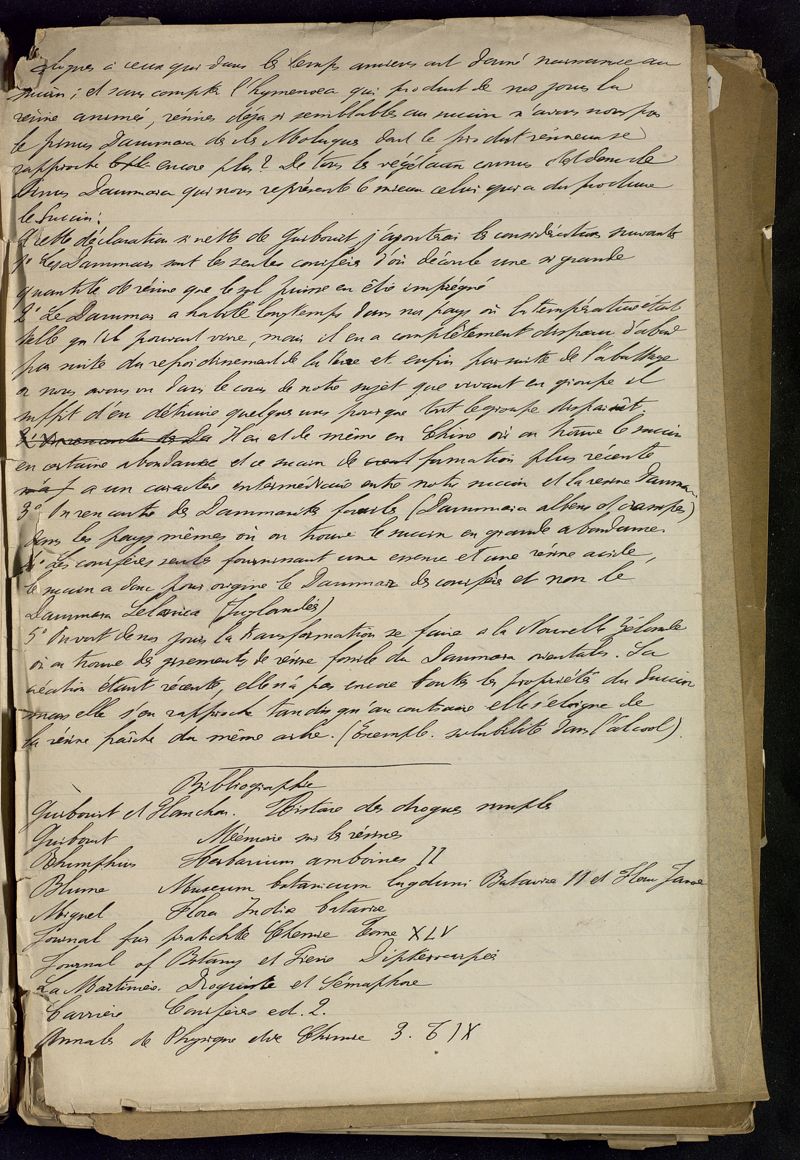 alogues à ceux qui dans les temps anciens ont donné naissance au
succin ; et sans compter l'hymenoea qui produit de nos jours la
résine animée, résines déjà si semblables au succin n'avons nous pas
le pinus Dammara des îles Moluques dont le produit résineux se
rapproche encore plus ? De tous les végétaux connus c'est donc le
Pinus Dammara qui nous représente le mieux celui qui a du produire
le Succin.
A cette déclaration si nette de Guibourt j'ajouterai les considérations suivantes
1° Les Dammars sont les seules conifères d'où découle une si grande
quantité de résine que le sol puisse en être imprégné
2° Le Dammar a habité longtemps dans nos pays où la température était
telle qu'il pouvait vivre, mais il en a complètement disparu d'abord
par suite du refroidissement de la terre et enfin par suite de l'abattage
or nous avons vu dans le cours de notre sujet que vivant en groupe il
suffit d'en détruire quelques uns pour que tout le groupe disparait.
Il en est de même en Chine où on trouve le succin
en certaine abondance et ce succin de formation plus récente
a un caractère intermédiaire entre notre succin et la résine Dammar
3° On rencontre des Dammarites fossiles (Dammara albens et crassipes)
dans les pays mêmes où on trouve le succin en grande abondance.
4° Les conifères seules fournissant une essence et une résine acide,
le succin a donc pour origine le Dammar des conifères et non le
Dammara Selanica (Juglandés)
5° On voit de nos jours la transformation se faire à la Nouvelle Zélande
où on trouve des gisements de résine fossile du Dammara orientalis. Sa
création étant récente, elle n'a pas encore toutes les propriétés du Succin
mais elle s'en rapproche tandis qu'au contraire elle s'éloigne de
la résine fraîche du même arbre. (Exemple. solubilité dans l'alcool).
Bibliographie
Guibourt et Planchon. Histoire des drogues simples
Guibourt Mémoire sur les résines
Rhumphius Herbarium amboines II
Blume Museum botanicum lugduni Batavia II et Flora Javae
Miquel Flora India batavia
Journal fur praktische Chemie Tome XLV
Journal of Botany et Dipterocarpées
La Martinière. Droguiste et Sémaphore
Carrière Conifères ed. 2.
Annales de Physique et de Chimie 3. T IX